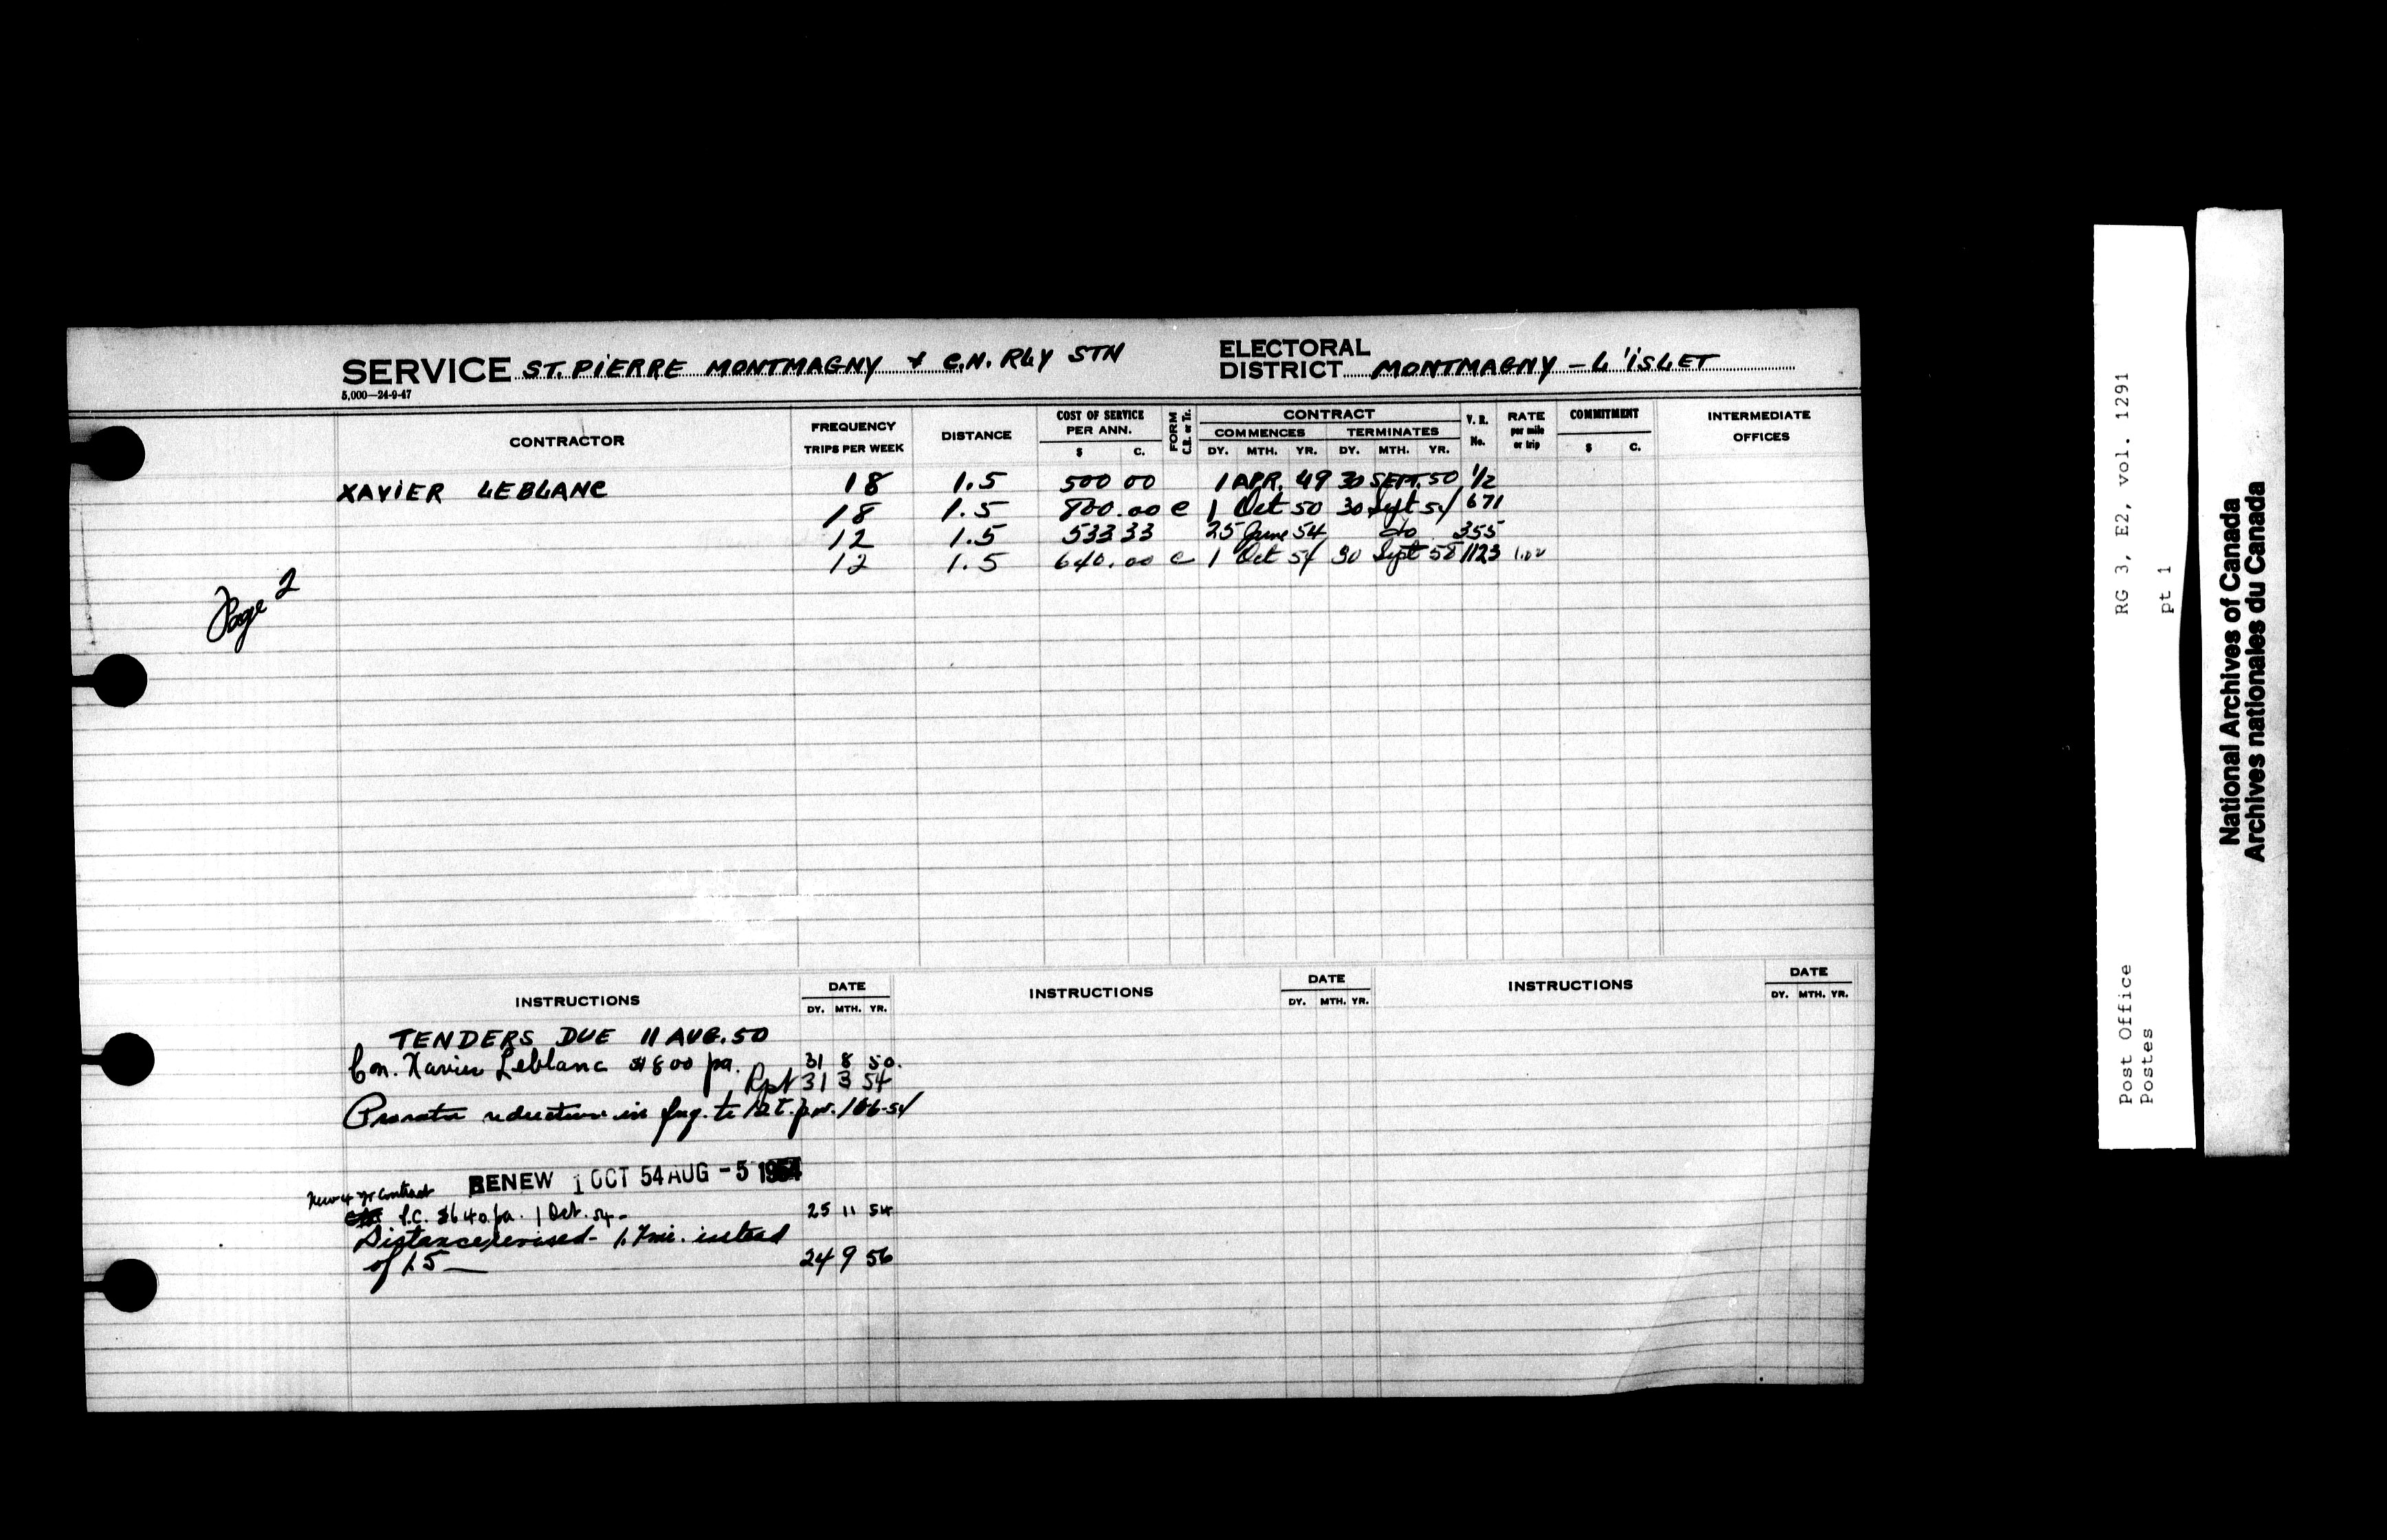 SERVICE ST. PIERRE MONTMAGNY & C.N. RLY STN ELECTORAL DISTRICT MONTMAGNY – L'ISLET
5,000—24-9-47
CONTRACTOR FREQUENCY TRIPS PER WEEK DISTANCE COST OF SERVICE PER ANN. $ C. FORM C.B. or Tr. CONTRACT COMMENCES DY. MTH. YR. TERMINATES DY. MTH. YR. V.R. No. RATE per mile or trip COMMITMENT $ C. INTERMEDIATE OFFICES
XAVIER LEBLANC 18 1.5 500 00 1 APR. 49 30 SEPT. 50 1/2
18 1.5 800.00 C 1 Oct 50 30 Sept 54 671
12 1.5 533 33 25 June 54 do 355
12 1.5 640.00 C 1 Oct 54 30 Sept 58 1123
Page 2
INSTRUCTIONS DATE DY. MTH. YR. INSTRUCTIONS DATE DY. MTH. YR. INSTRUCTIONS DATE DY. MTH. YR.
TENDERS DUE 11 AUG. 50
Con. Xavier Leblanc $800 pa. 31 8 50.
Rpt 31 3 54
Prorata reduction in frq. to 12 t.p.w.
RENEW 1 OCT 54 AUG -5 1954
New 4 yr Contract
$640 pa. 1 Oct. 54 - 25 11 54
Distance revised - 1.7 mi. instead
of 1.5 — 24 9 56
RG 3, E2, vol. 1291
pt 1
Post Office
Postes
National Archives of Canada
Archives nationales du Canada